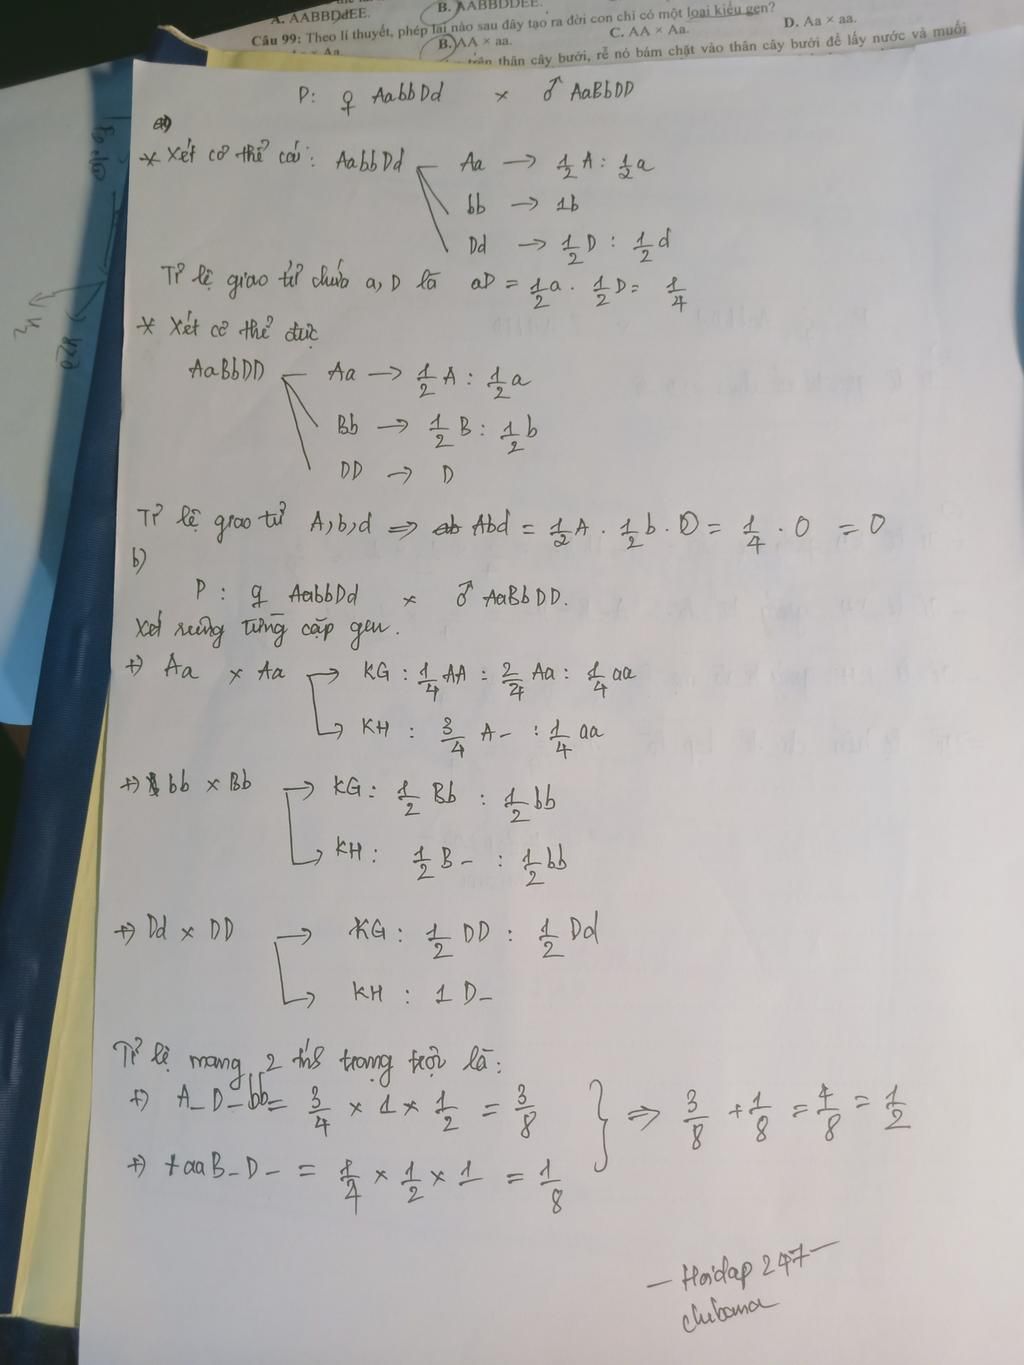 A. AABBDdEE.
B. AABBDDEE.
Câu 99: Theo lí thuyết, phép lai nào sau đây tạo ra đời con chỉ có một loại kiểu gen?
B. AA × aa.
C. AA × Aa.
D. Aa × aa.
thân cây bưởi, rễ nó bám chặt vào thân cây bưởi để lấy nước và muối
P: ♀ AabbDd × ♂ AaBbDD
a)
* Xét cơ thể cái: AabbDd
Aa → 1/2 A : 1/2 a
bb → 1b
Dd → 1/2 D : 1/2 d
Tỉ lệ giao tử chứa a, D là aD = 1/2 a . 1/2 D = 1/4
* Xét cơ thể đực
AaBbDD
Aa → 1/2 A : 1/2 a
Bb → 1/2 B : 1/2 b
DD → D
Tỉ lệ giao tử A, b, d => Abd = 1/2 A . 1/2 b . 0 = 1/4 . 0 = 0
b)
P : ♀ AabbDd × ♂ AaBbDD.
Xét riêng từng cặp gen.
+) Aa × Aa → KG : 1/4 AA : 2/4 Aa : 1/4 aa
→ KH : 3/4 A- : 1/4 aa
+) bb × Bb → KG : 1/2 Bb : 1/2 bb
→ KH : 1/2 B- : 1/2 bb
+) Dd × DD → KG : 1/2 DD : 1/2 Dd
→ KH : 1 D-
Tỉ lệ mang 2 tính trạng trội là :
+) A_D_bb = 3/4 × 1 × 1/2 = 3/8
+) +aaB_D_ = 1/4 × 1/2 × 1 = 1/8
=> 3/8 + 1/8 = 4/8 = 1/2
- Hoidap 247 -